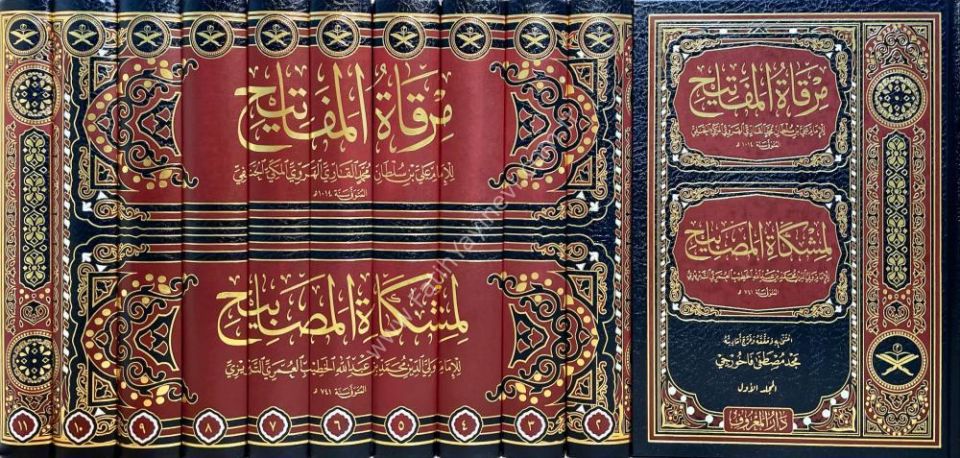 مرقاة المفاتيح
للإمام علي بن سلطان محمد القاري الهروي المكي الحنفي
المتوفى سنة ١٠١٤ هـ
لمشكاة المصابيح
للإمام ولي الدين محمد بن عبد الله الخطيب العمري التبريزي
المتوفى سنة ٧٤١ هـ
١١ ١٠ ٩ ٨ ٧ ٦ ٥ ٤ ٣ ٢
مرقاة المفاتيح
للإمام علي بن سلطان محمد القاري الهروي المكي الحنفي
المتوفى سنة ١٠١٤ هـ
لمشكاة المصابيح
للإمام ولي الدين محمد بن عبد الله الخطيب العمري التبريزي
المتوفى سنة ٧٤١ هـ
اعتنى به وحققه وخرج أحاديثه
محمد مصطفى
المجلد الأول
دار المعروف